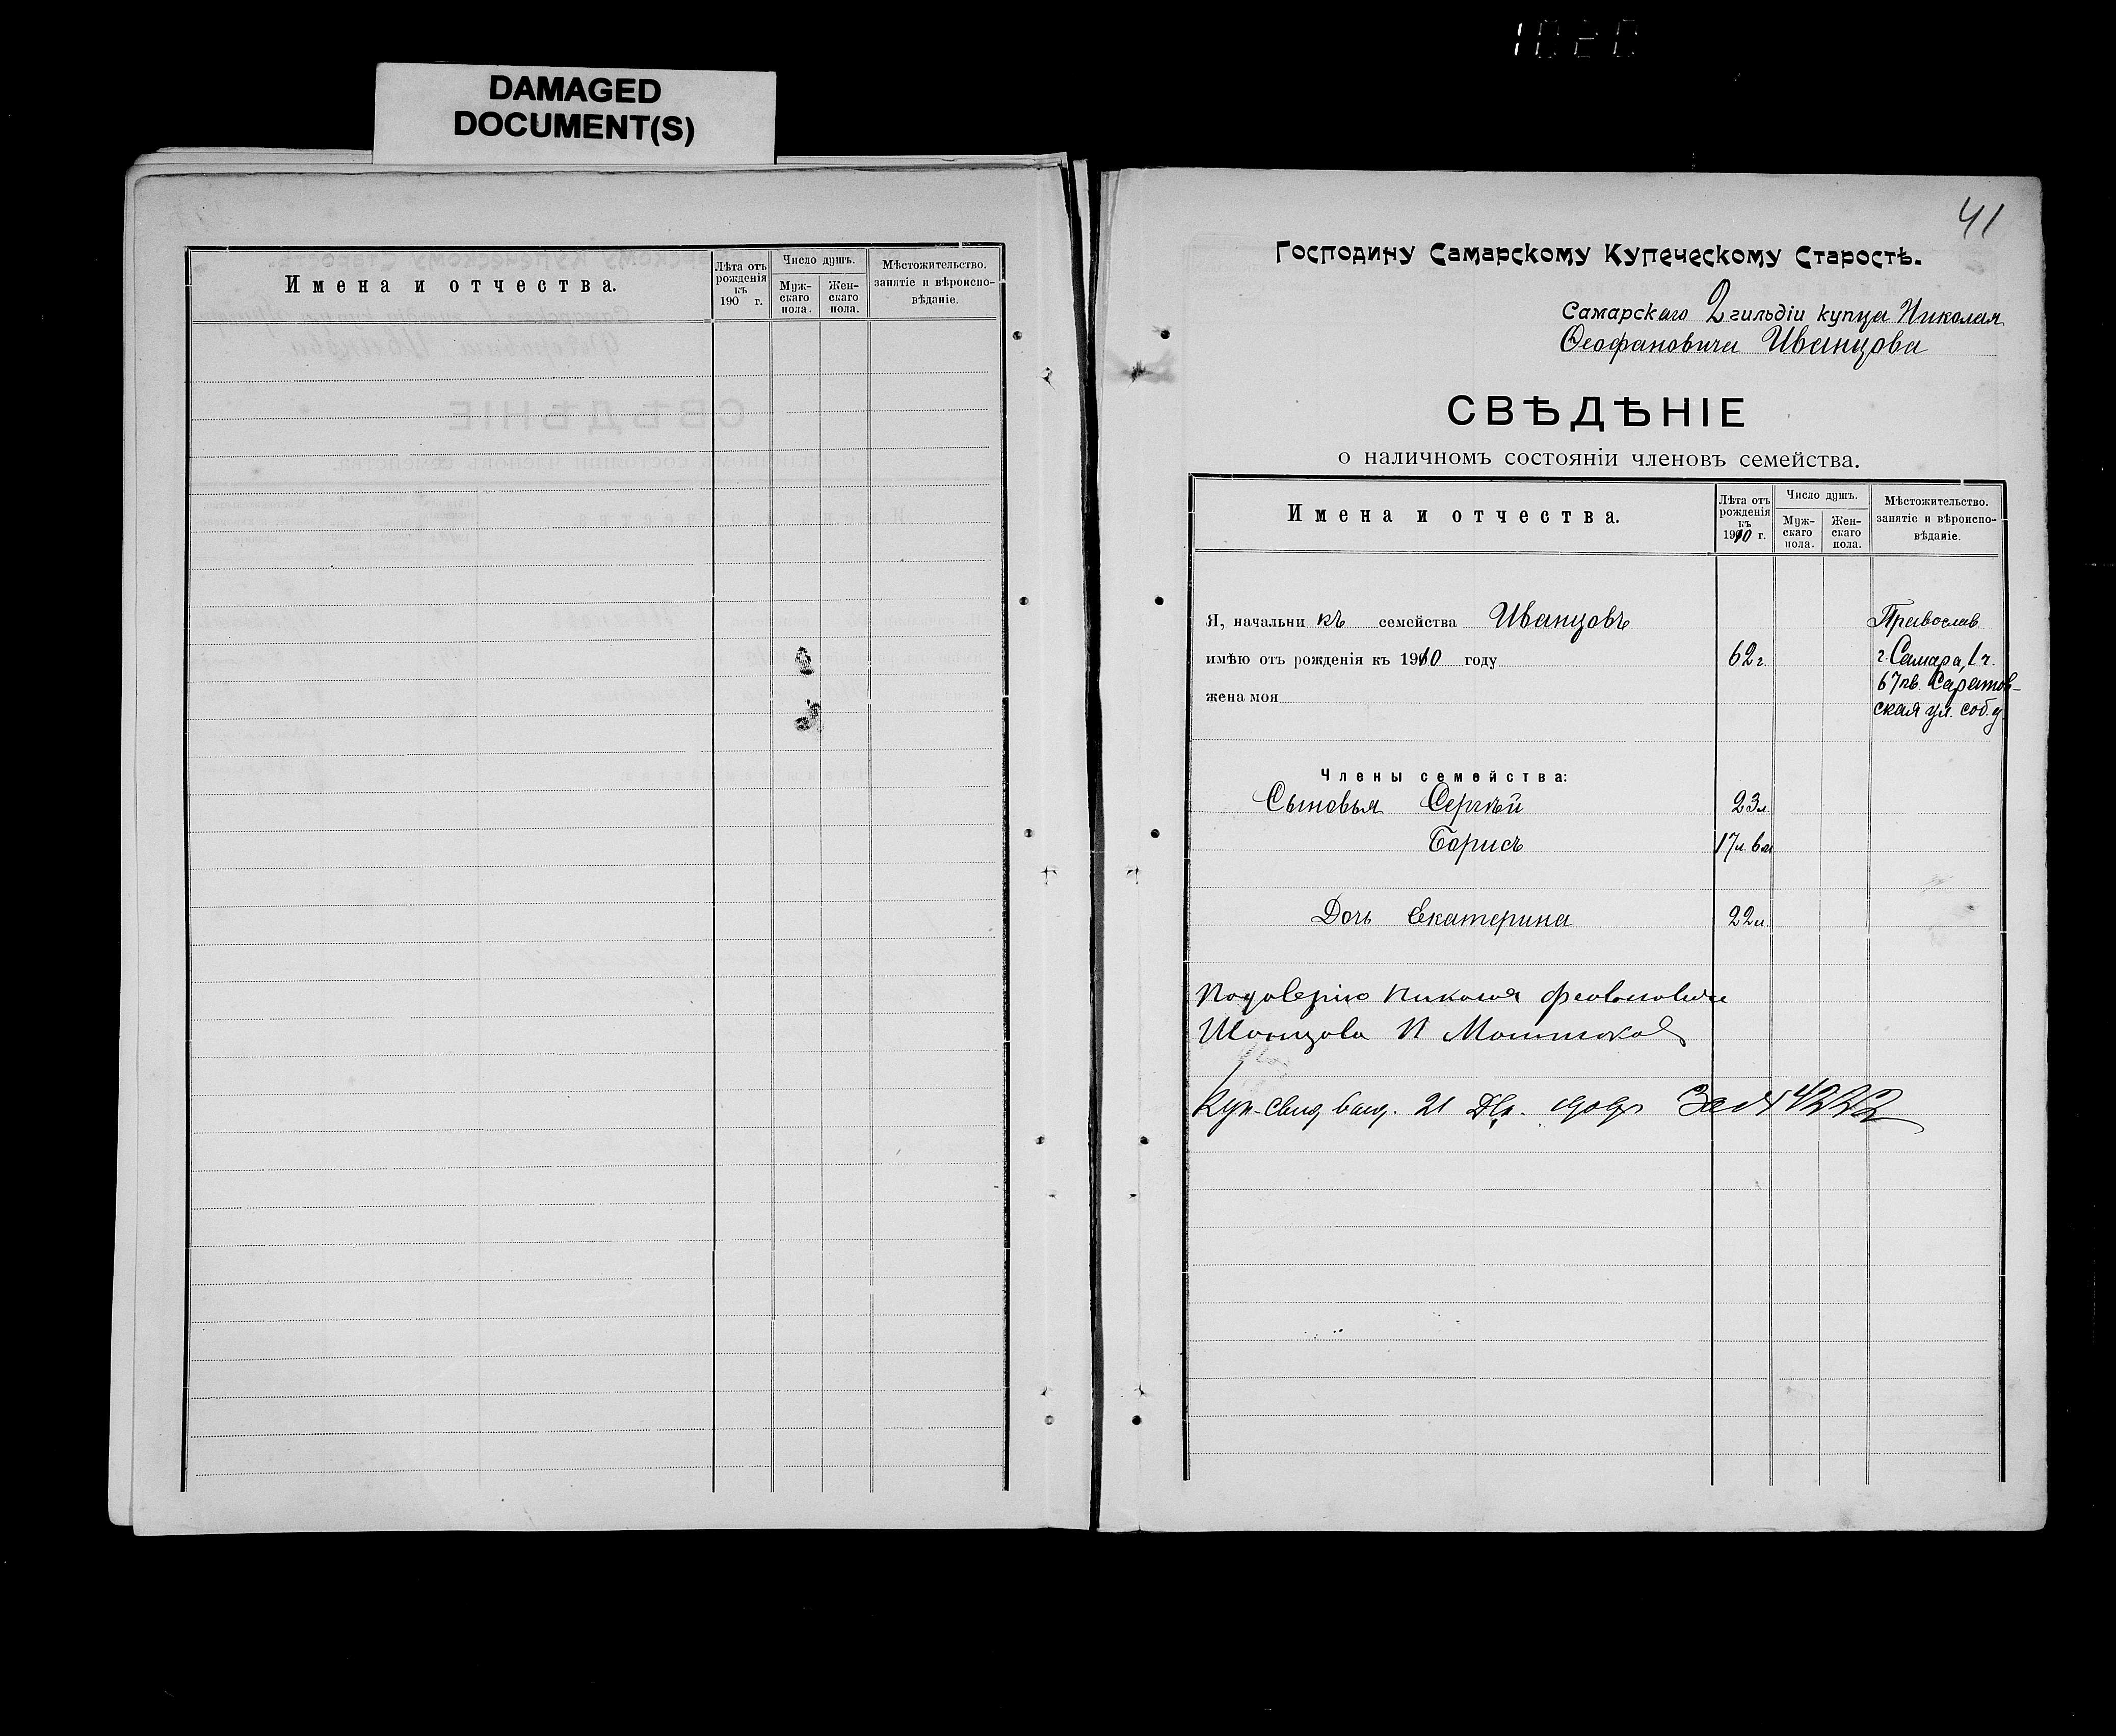 1020
DAMAGED
DOCUMENT(S)
Имена и отчества.
Лѣта отъ рожденія къ 190 г.
Число душъ.
Мужскаго пола.
Женскаго пола.
Мѣстожительство. занятіе и вѣроисповѣданіе.
41
Господину Самарскому Купеческому Старостѣ.
Самарскаго 2 гильдіи купца Николая
Ѳеофановича Иванцова
СВѢДѢНІЕ
о наличномъ состояніи членовъ семейства.
Имена и отчества.
Лѣта отъ рожденія къ 1910 г.
Число душъ.
Муж-скаго пола.
Жен-скаго пола.
Мѣстожительство. занятіе и вѣроиспо-вѣданіе.
Я, начальникъ семейства Иванцовъ Православ
имѣю отъ рожденія къ 1910 году 62 г. г. Самара, 1 ч.
67 кв. Саратов-
жена моя ская ул. соб. д.
Члены семейства:
Сыновья Сергѣй 23 л.
Борисъ 17 л 6 м
Дочь Екатерина 22 л.
По доверію Николая
Иванцова
Куп. свид выд. 21 Дек. за № 4222